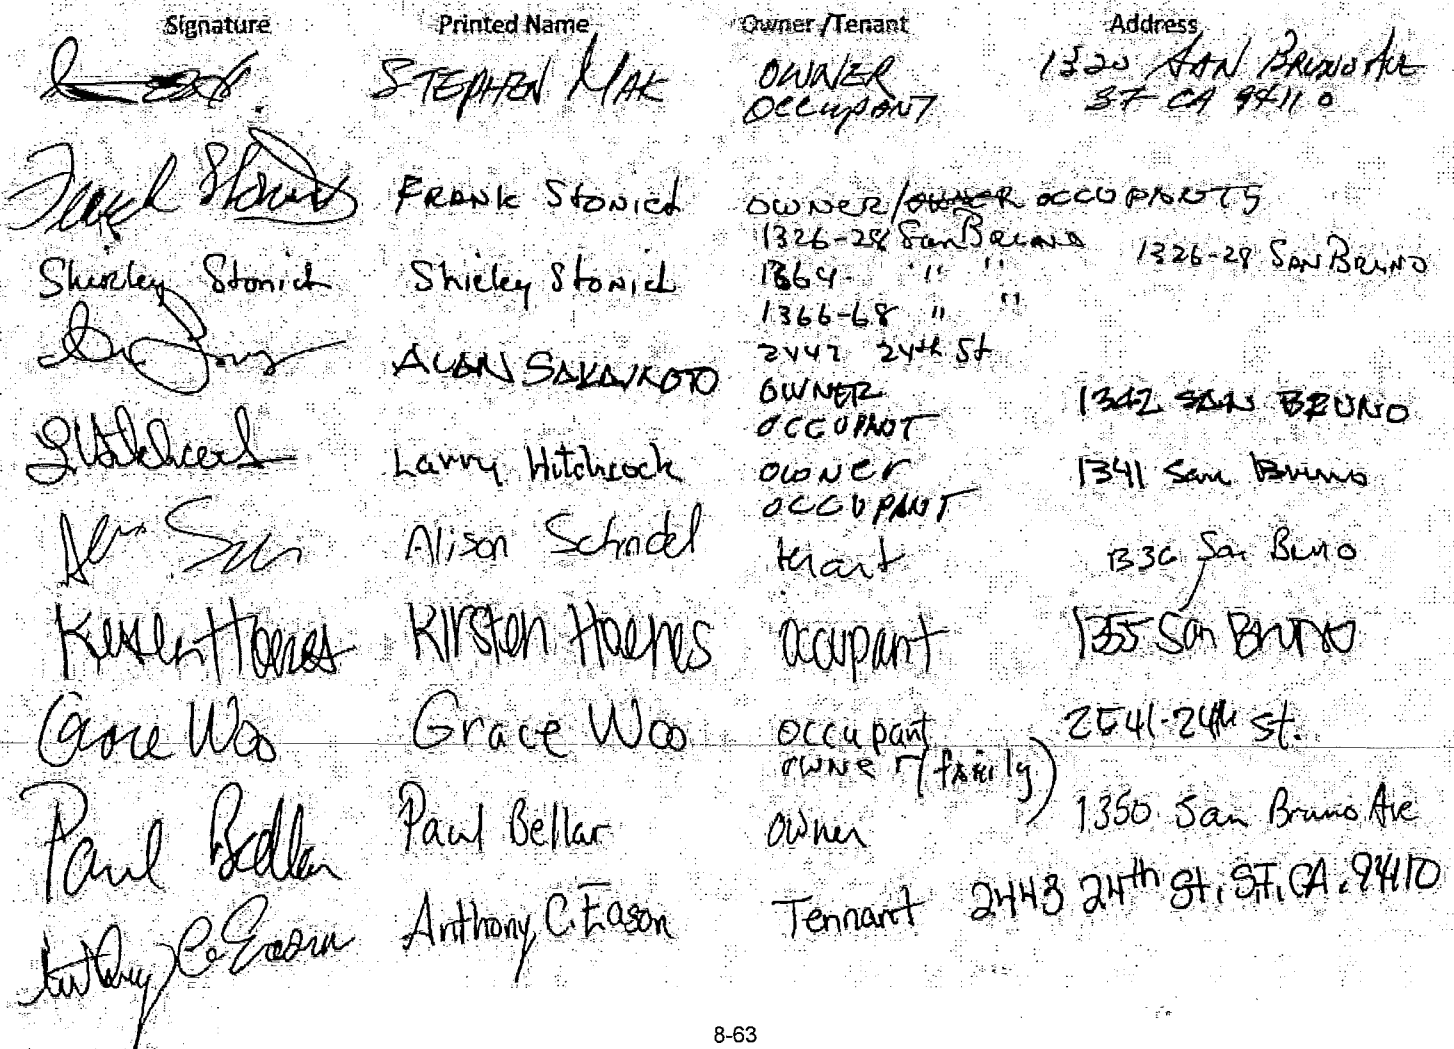 Signature Printed Name Owner /Tenant Address
STEPHEN MAK OWNER 1320 SAN BRUNO AVE
OCCUPANT SF CA 94110
Frank Stonich FRANK Stonich OWNER/OWNER OCCUPANTS
1326-28 San Bruno 1326-28 SAN BRUNO
Shirley Stonich Shirley Stonich 1364 " "
1366-68 " "
ALAN SAKAMOTO 2447 24th St
OWNER 1342 SAN BRUNO
OCCUPANT
L Hitchcock Larry Hitchcock OWNER 1341 San Bruno
OCCUPANT
Alison Schindel tenant 1336 San Bruno
Kirsten Hoenes Kirsten Hoenes occupant 1355 San Bruno
Grace Woo Grace Woo occupant 2541-24th St.
OWNER (family)
Paul Bellar Paul Bellar Owner 1350 San Bruno Ave
Anthony C. Eason Anthony C. Eason Tennant 2443 24th St, S.F, CA. 94110
8-63